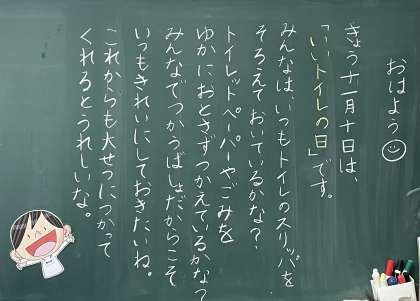 おはよう
きょう十一月十日は、
「いいトイレの日」です。
みんなは、いつもトイレのスリッパを
そろえて おいているかな?
トイレットペーパーやごみを
ゆかにおとさずつかえているかな?
みんなでつかうばしょだからこそ
いつもきれいにしておきたいね。
これからも大せつにつかって
くれるとうれしいな。